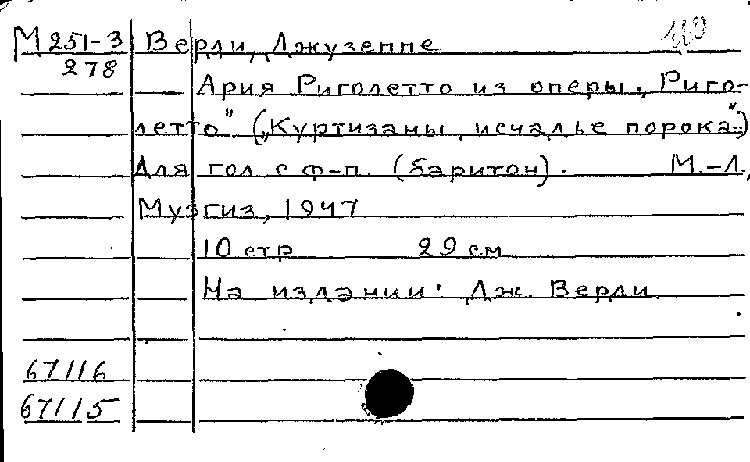 М 251-3 Верди, Джузеппе
278
Ария Риголетто из оперы „Риго-
летто" („Куртизаны, исчадье порока".)
Для гол с ф-п. (баритон). М.-Л.,
Музгиз, 1947
10 стр 29 см
На издании: Дж. Верди
67116
67115